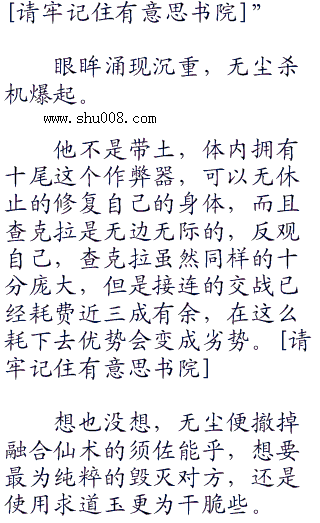 [请牢记住有意思书院]”
眼眸涌现沉重，无尘杀
机爆起。
www.shu008.com
他不是带土，体内拥有
十尾这个作弊器，可以无休
止的修复自己的身体，而且
查克拉是无边无际的，反观
自己，查克拉虽然同样的十
分庞大，但是接连的交战已
经耗费近三成有余，在这么
耗下去优势会变成劣势。[请
牢记住有意思书院]
想也没想，无尘便撤掉
融合仙术的须佐能乎，想要
最为纯粹的毁灭对方，还是
使用求道玉更为干脆些。